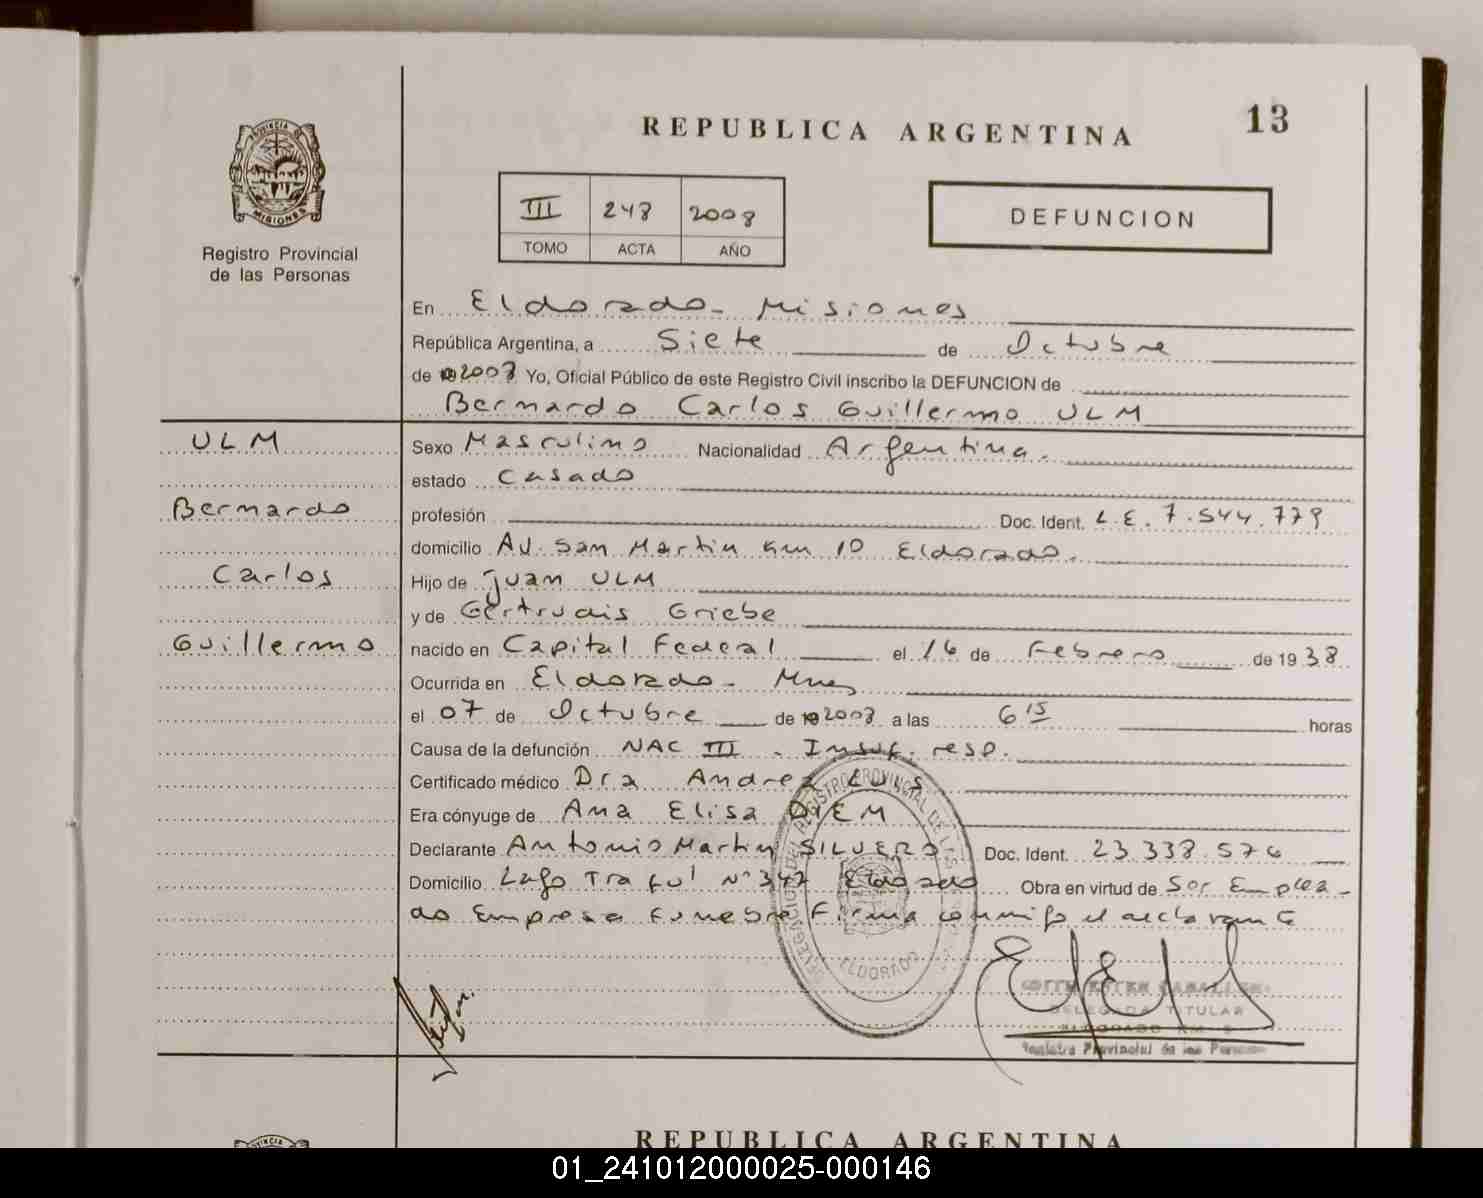 13
REPUBLICA ARGENTINA
PROVINCIA DE
MISIONES
Registro Provincial
de las Personas
III 248 2008
TOMO ACTA AÑO
DEFUNCION
En Eldorado - Misiones
República Argentina, a Siete de Octubre
de 2008 Yo, Oficial Público de este Registro Civil inscribo la DEFUNCION de
Bernardo Carlos Guillermo ULM
ULM
Bernardo
Carlos
Guillermo
Sexo Masculino Nacionalidad Argentina.
estado Casado
profesión Doc. Ident. L.E. 7.544.779
domicilio AV. San Martin Km 10 Eldorado.
Hijo de Juan ULM
y de Gertrudis Griebe
nacido en Capital Federal el 16 de Febrero de 1938
Ocurrida en Eldorado - Mnes
el 07 de Octubre de 2008 a las 6 15 horas
Causa de la defunción NAC III . Insuf. resp.
Certificado médico Dra Andrea
Era cónyuge de Ana Elisa DIEM
Declarante Antonio Martin SILVERO Doc. Ident. 23.338.576
Domicilio Lago Traful N° 347 Eldorado Obra en virtud de Ser Emplea-
do Empresa Funebre Firma conmigo el declarante
REGISTRO PROVINCIAL DE LAS
ELDORADO
DELEGADA TITULAR
Registro Provincial de las Personas
REPUBLICA ARGENTINA
01_241012000025-000146